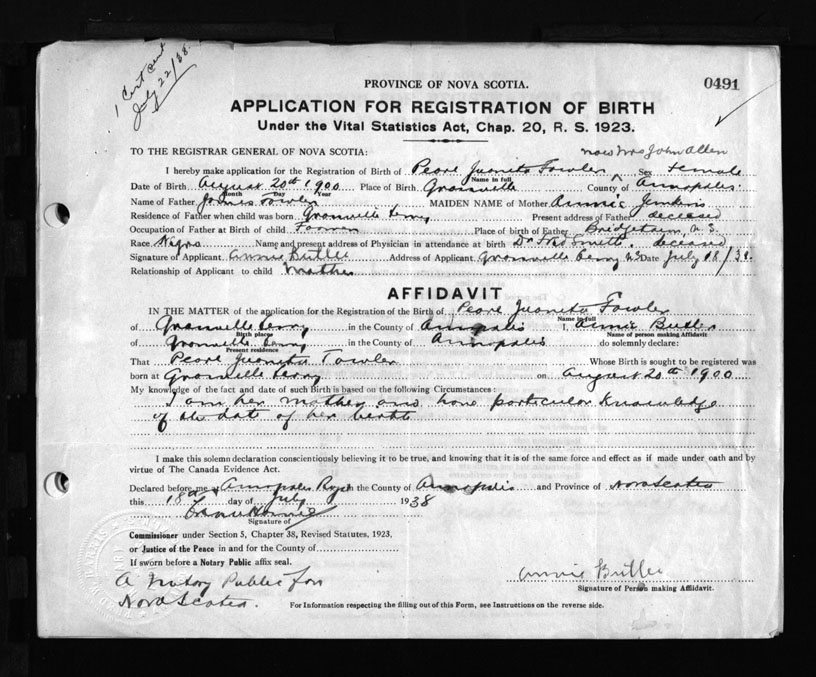 1 Cert sent
July 22/38.
PROVINCE OF NOVA SCOTIA.
0491
APPLICATION FOR REGISTRATION OF BIRTH
Under the Vital Statistics Act, Chap. 20, R. S. 1923.
TO THE REGISTRAR GENERAL OF NOVA SCOTIA:
now Mrs John Allen
I hereby make application for the Registration of Birth of Pearl Juanita Fowler Sex female
Name in full
Date of Birth August 20th 1900 Place of Birth Granville County of Annapolis.
Month Day Year
Name of Father James Fowler MAIDEN NAME of Mother Annie Jenkins
Residence of Father when child was born Granville Ferry Present address of Father deceased
Occupation of Father at Birth of child Farmer Place of birth of Father Bridgetown, N.S.
Race Negro Name and present address of Physician in attendance at birth Dr Fred Smith, deceased
Signature of Applicant Annie Butler Address of Applicant Granville Ferry NS Date July 18/38.
Relationship of Applicant to child Mother
AFFIDAVIT
IN THE MATTER of the application for the Registration of the Birth of Pearl Juanita Fowler
Name in full
of Granville Ferry in the County of Annapolis I, Annie Butler
Birth place Name of person making Affidavit
of Granville Ferry in the County of Annapolis do solemnly declare:
Present residence
That Pearl Juanita Fowler Whose Birth is sought to be registered was
born at Granville Ferry on August 20th 1900
My knowledge of the fact and date of such Birth is based on the following Circumstances:
I am her mother and have particular knowledge
of the date of her birth
I make this solemn declaration conscientiously believing it to be true, and knowing that it is of the same force and effect as if made under oath and by
virtue of The Canada Evidence Act.
Declared before me at Annapolis Royal in the County of Annapolis and Province of Nova Scotia
this 18th day of July 1938
Signature of
Commissioner under Section 5, Chapter 38, Revised Statutes, 1923,
or Justice of the Peace in and for the County of
If sworn before a Notary Public affix seal.
A Notary Public for
Nova Scotia.
Annie Butler
Signature of Person making Affidavit.
For Information respecting the filling out of this Form, see Instructions on the reverse side.